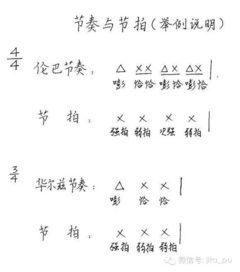 节奏与节拍(举例说明)
4/4
伦巴节奏: △ ×× △× △× |
嘭 恰恰 嘭恰 嘭恰
节 拍: × × × × |
强拍 弱拍 次强 弱拍
3/4
华尔兹节奏: △ × × |
嘭 恰 恰
节 拍: × × × |
强拍 弱拍 弱拍
微信号: jita_pu